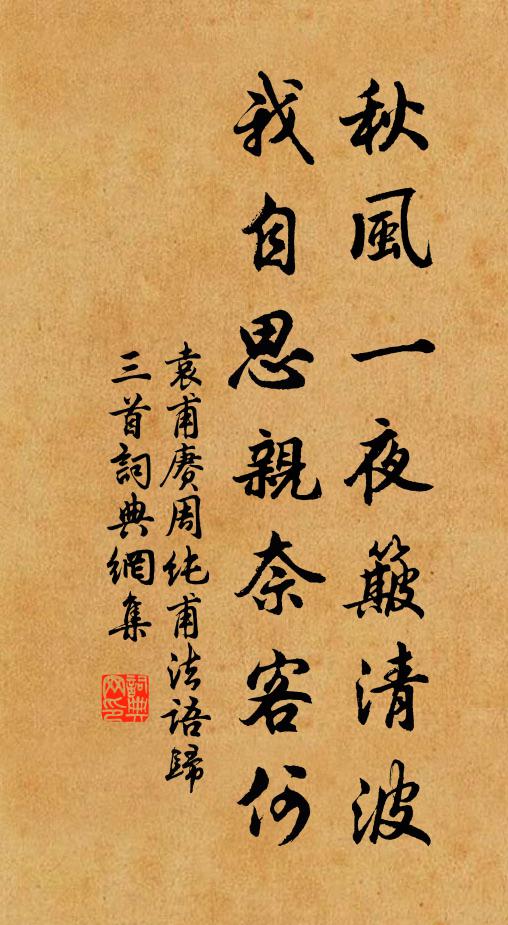 秋風一夜簸清波
我自思親奈客何
袁甫賡周純甫法語歸
三首詞典網集
詞典網印